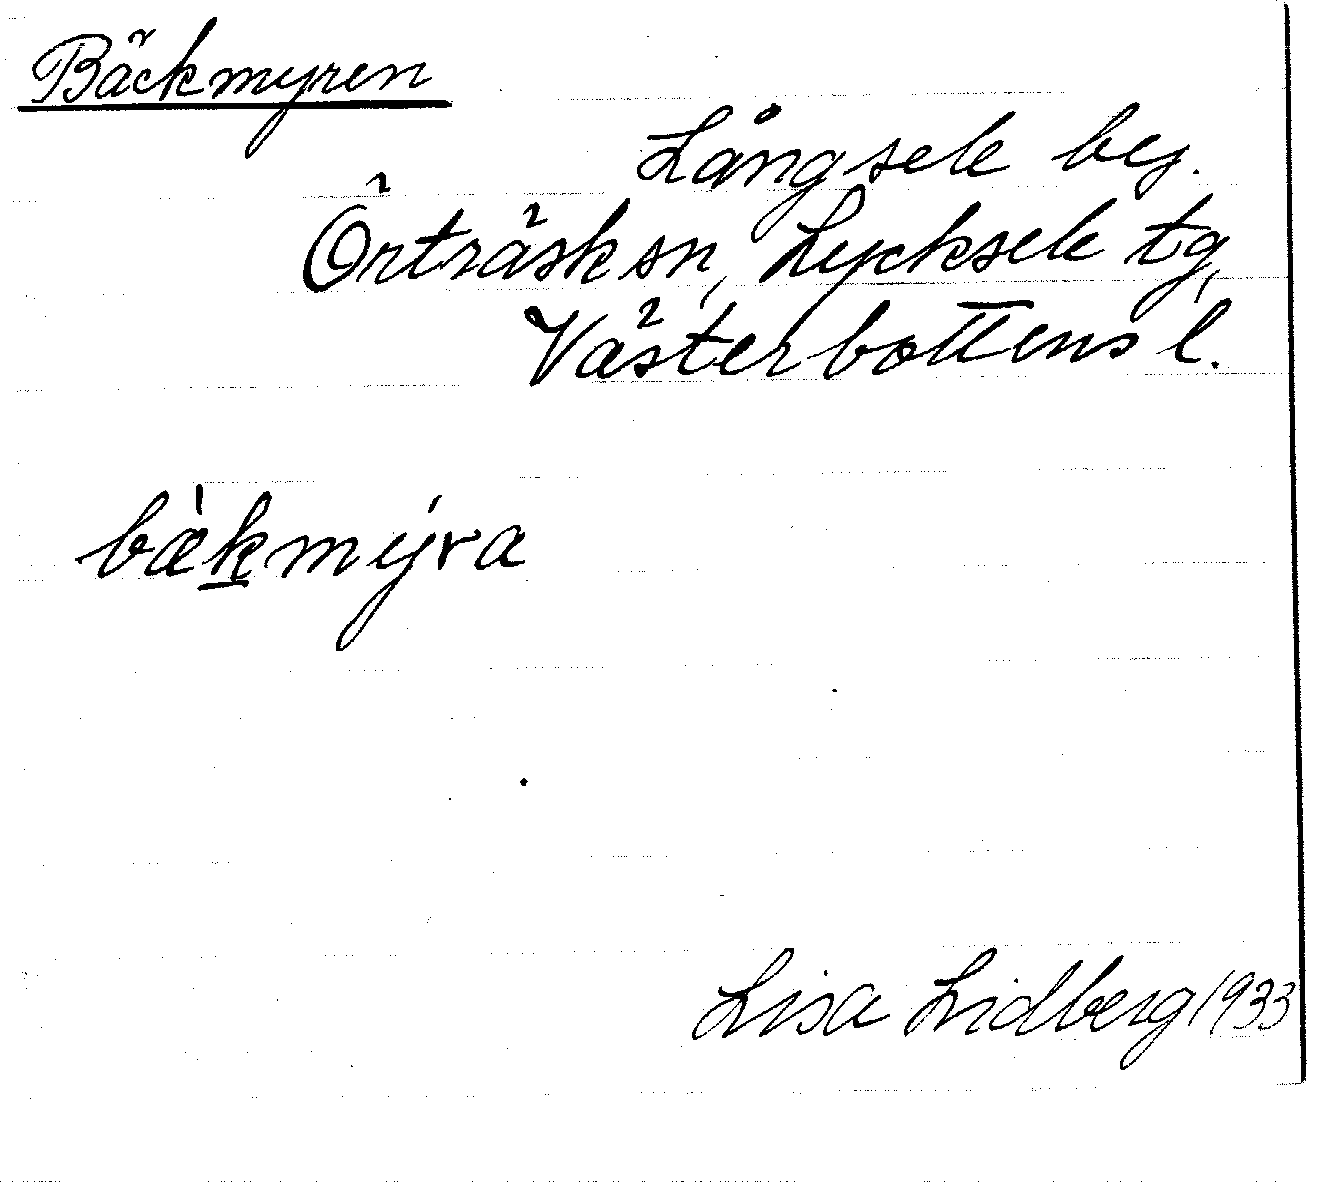 Bäckmyren
Långsele by.
Örträsk sn, Lycksele tg,
Västerbottens l.
bæ̀k̲mýra
Lisa Lidberg 1933